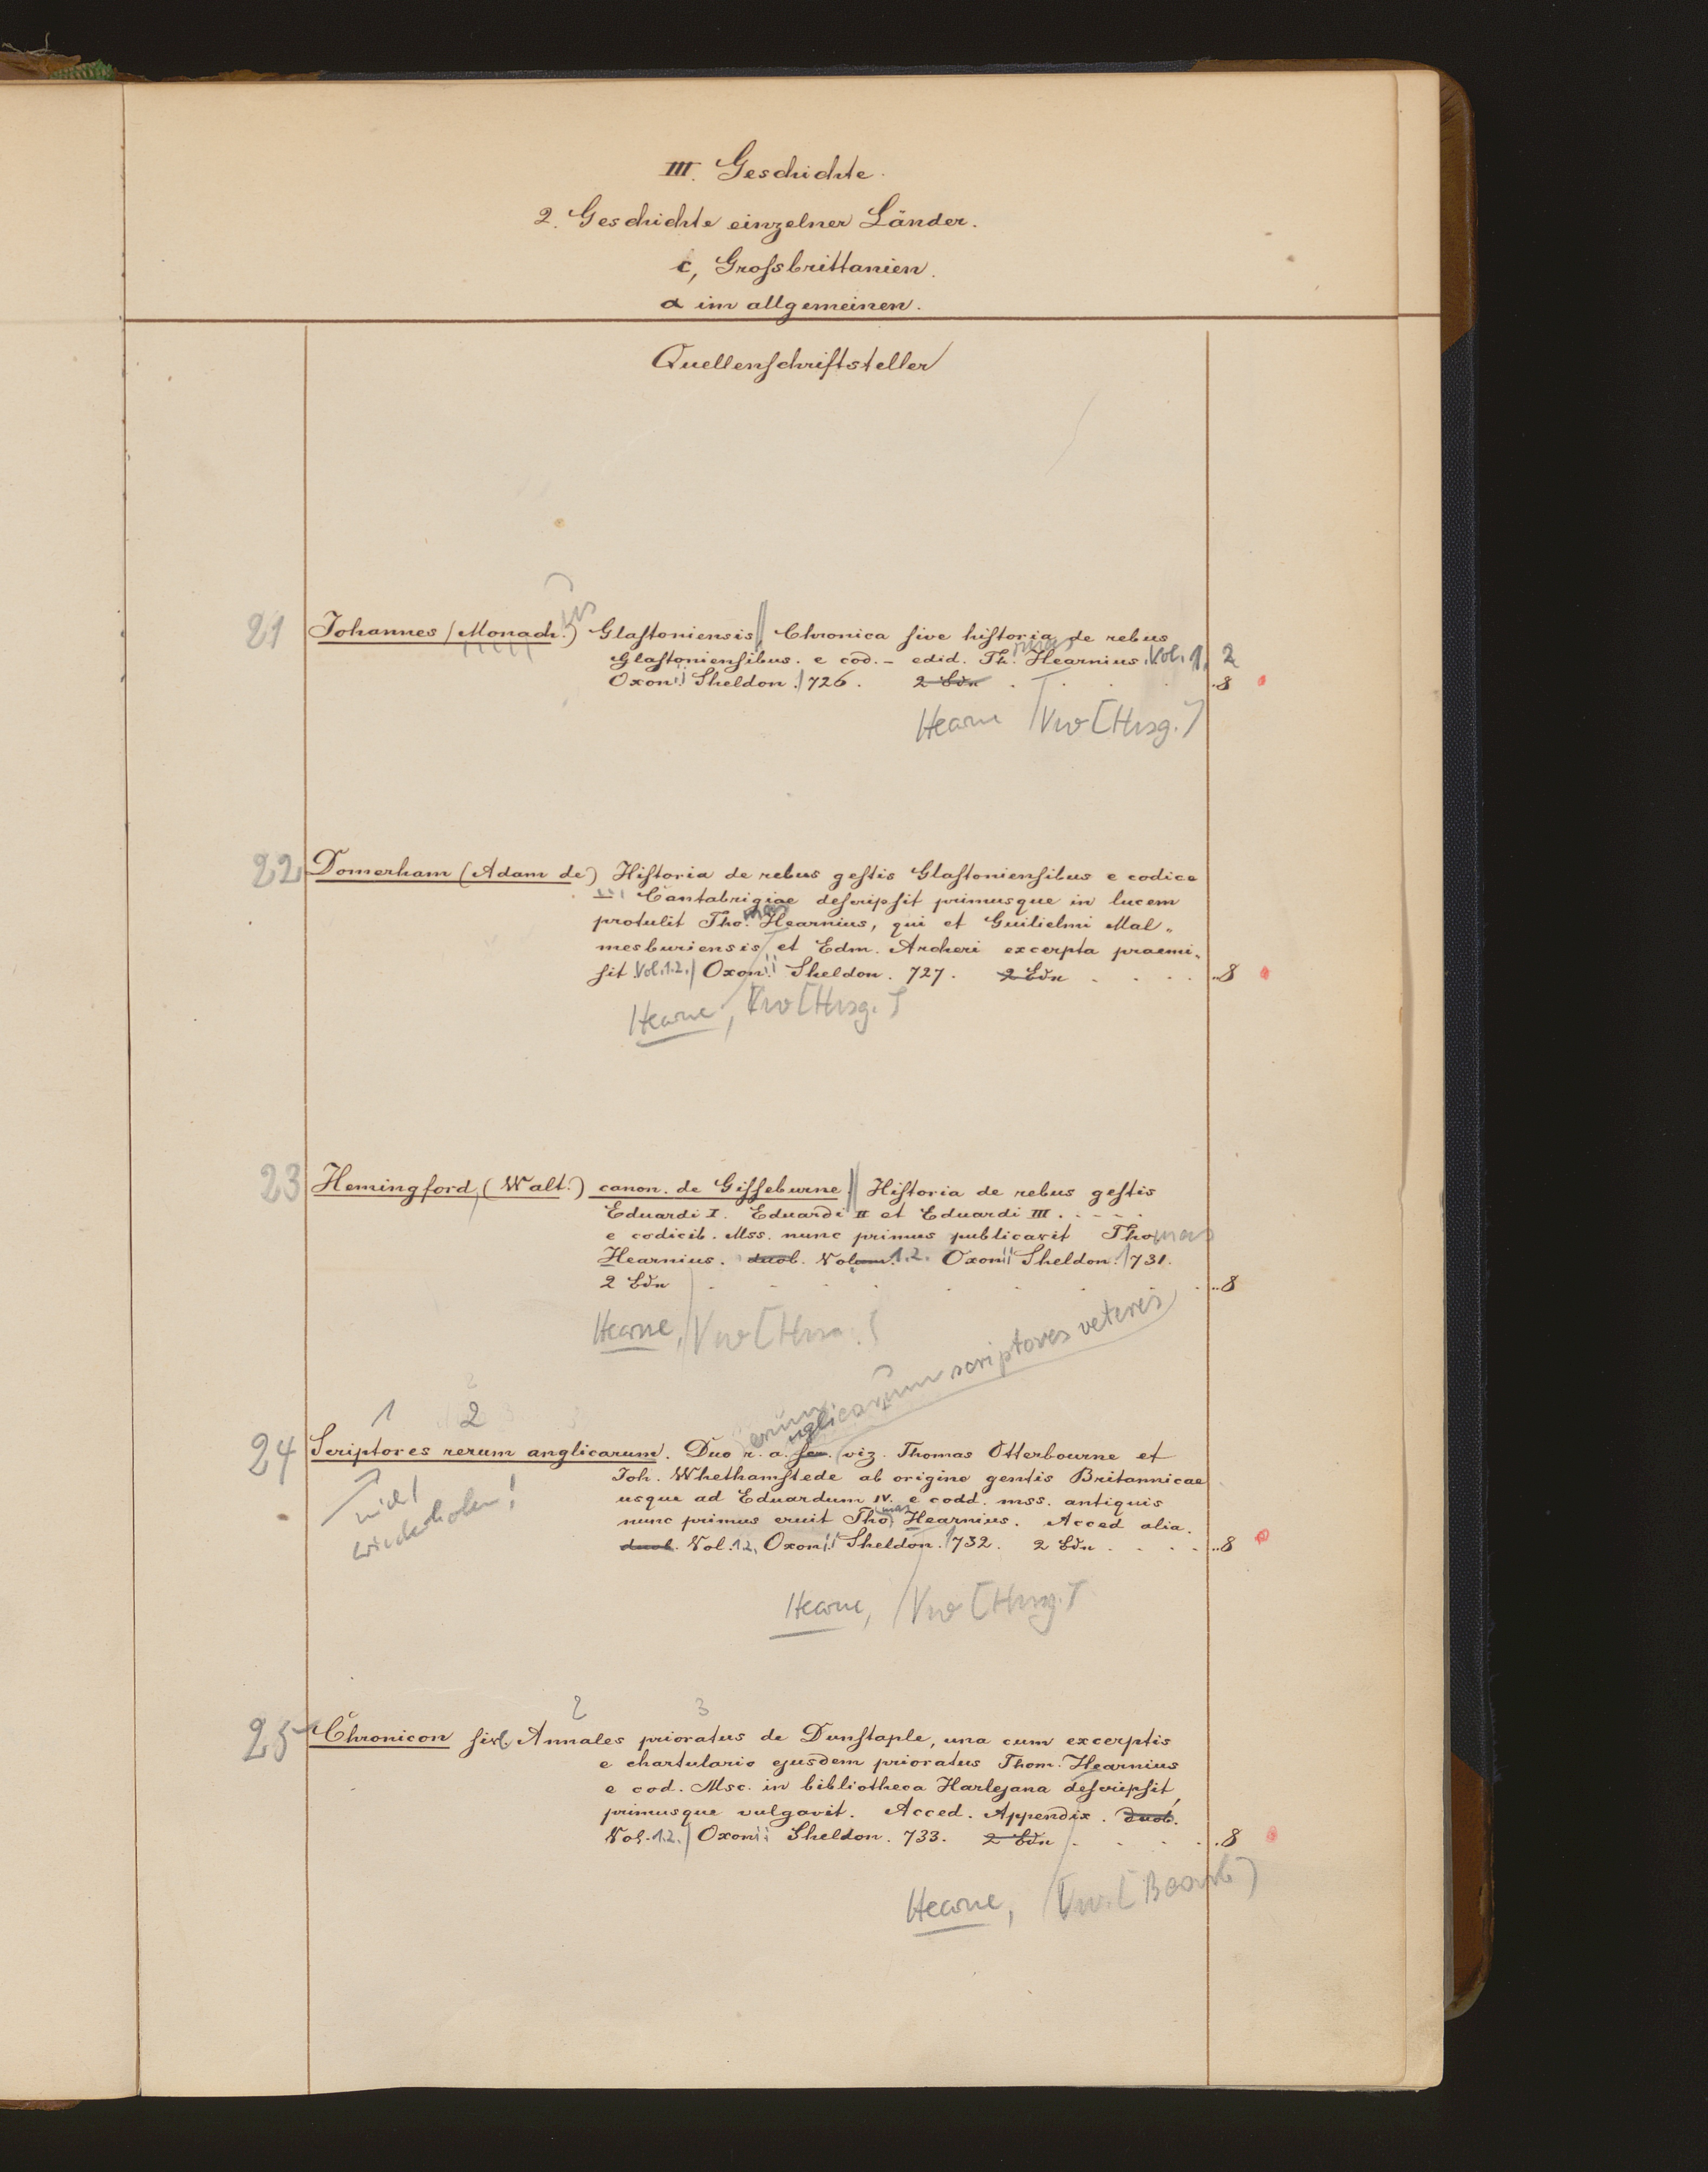 III. Geschichte.
2. Geschichte einzelner Länder.
c, Grossbrittanien.
α im allgemeinen.
Quellenschriftsteller
21 Johannes (Monach.) Glastoniensis Chronica sive historia de rebus
Glastoniensibus. e cod. – edid. Th. Hearnius. Vol. 1, 2
Oxon. Sheldon. 726. 2 Bdn . . . . 8
Hearne Vw [Hrsg.]
22 Domerham (Adam de) Historia de rebus gestis Glastoniensibus e codice
Cantabrigiae descripsit primusque in lucem
protulit Thomas Hearnius, qui et Guilielmi Mal„
mesburiensis et Edm. Archeri excerpta praemi„
sit Vol. 1.2. Oxon. Sheldon. 727. 2 Bdn . . . . 8
Hearne, Vw [Hrsg.]
23 Hemingford, (Walt.) canon. de Gisseburne Historia de rebus gestis
Eduardi I. Eduardi II et Eduardi III . - - - .
e codicib. Mss. nunc primus publicavit Thomas
Hearnius. duob. Volum. 1.2. Oxon. Sheldon. 731.
2 Bdn . . . . . . . . 8
Hearne, Vw [Hrsg.]
rerum anglicarum scriptores veteris
1 2
24 Scriptores rerum anglicarum. Duo r. a. scr. viz. Thomas Otterbourne et
Joh. Whethamstede ab origine gentis Britannicae
usque ad Eduardum IV. e codd. mss. antiquis
nicht
nunc primus eruit Thomas Hearnius. Acced alia.
wiederholen!
duob. Vol. 1.2. Oxon. Sheldon. 732. 2 Bdn . . . . 8
Hearne, Vw [Hrsg.]
2 3
25 Chronicon sive Annales prioratus de Dunstaple, una cum excerptis
e chartulario ejusdem prioratus Thom. Hearnius
e cod. Msc. in bibliotheca Harlejana descripsit,
primusque vulgavit. Acced. Appendix. duob.
Vol. 1.2. Oxon. Sheldon. 733. 2 Bdn . . . . 8
Hearne, Vw. [Bearb]